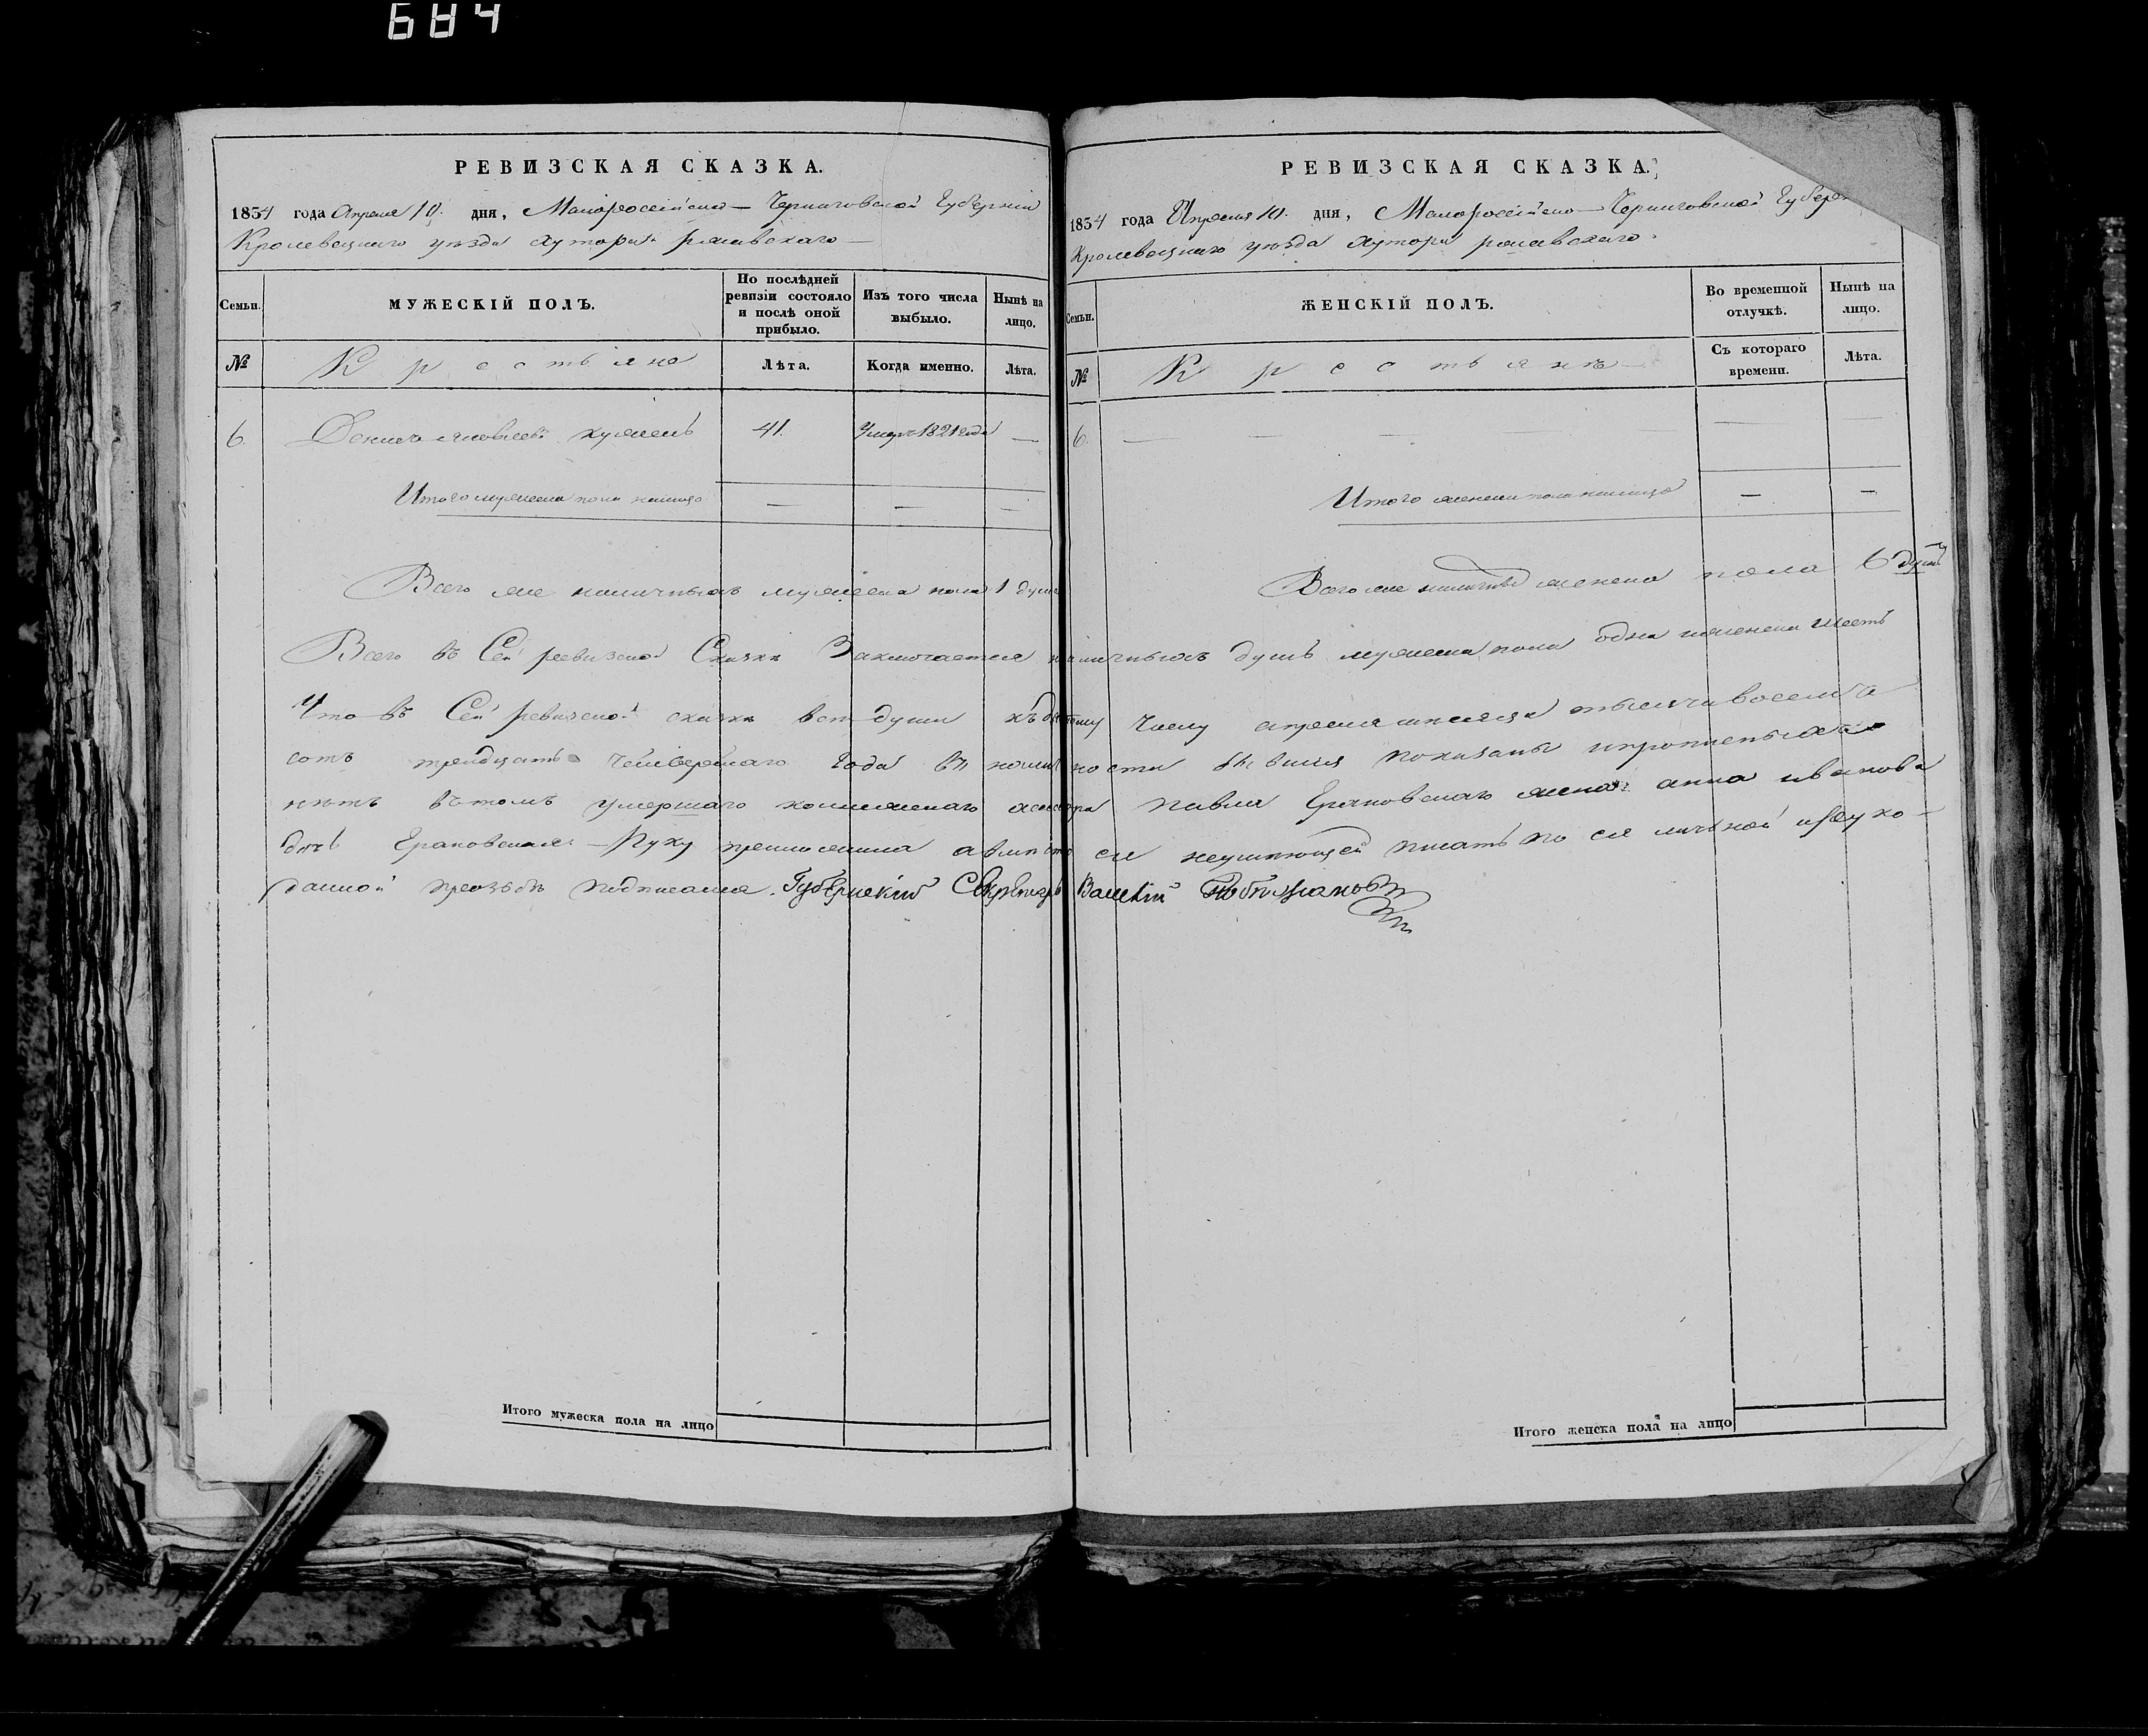 684
РЕВИЗСКАЯ СКАЗКА.
1834 года Апреля 10. дня, Малоросейско — Черниговской Губерніи
Кролевецкаго уезда хутора
Семьи.
МУЖЕСКІЙ ПОЛЪ.
По послѣдней ревизіи состояло и послѣ оной прибыло.
Изъ того числа выбыло.
Нынѣ на лицо.
№
Крестьяне
Лѣта.
Когда именно.
Лѣта.
6
41.
Умеръ 1821 года
—
Итого мужеска пола налицо — — —
Всего же наличныхъ мужеска пола 1 душа
РЕВИЗСКАЯ СКАЗКА.
1834 года Апреля 10. дня, Малоросейско — Черниговской
Кролевецкаго уезда хутора
Семьи.
ЖЕНСКІЙ ПОЛЪ.
Во временной отлучкѣ.
Нынѣ на лицо.
№
Крестьянъ
Съ котораго времени.
Лѣта.
6. — — — — — —
Итого женска пола налицо — —
Всего же женска пола 6 душъ
Всего въ Сей ревизской Сказки Заключается наличныхъ душъ мужеска пола одна иженска шесть
Что въ Сей ревизской сказки все души къ числу апреля месяца тысяча восемъ
сотъ тридцать четвертаго года въ наличности бывшия показаны ипрописныхъ
нетъ вътомъ умершаго колежскаго асесора Павла жена анна иванова
дочь Руку приложила авместо ея неумеющей писать по ея личной
данной прозьбе подписался. Губернскій Секретарь
Итого мужеска пола на лицо
Итого женска пола на лицо